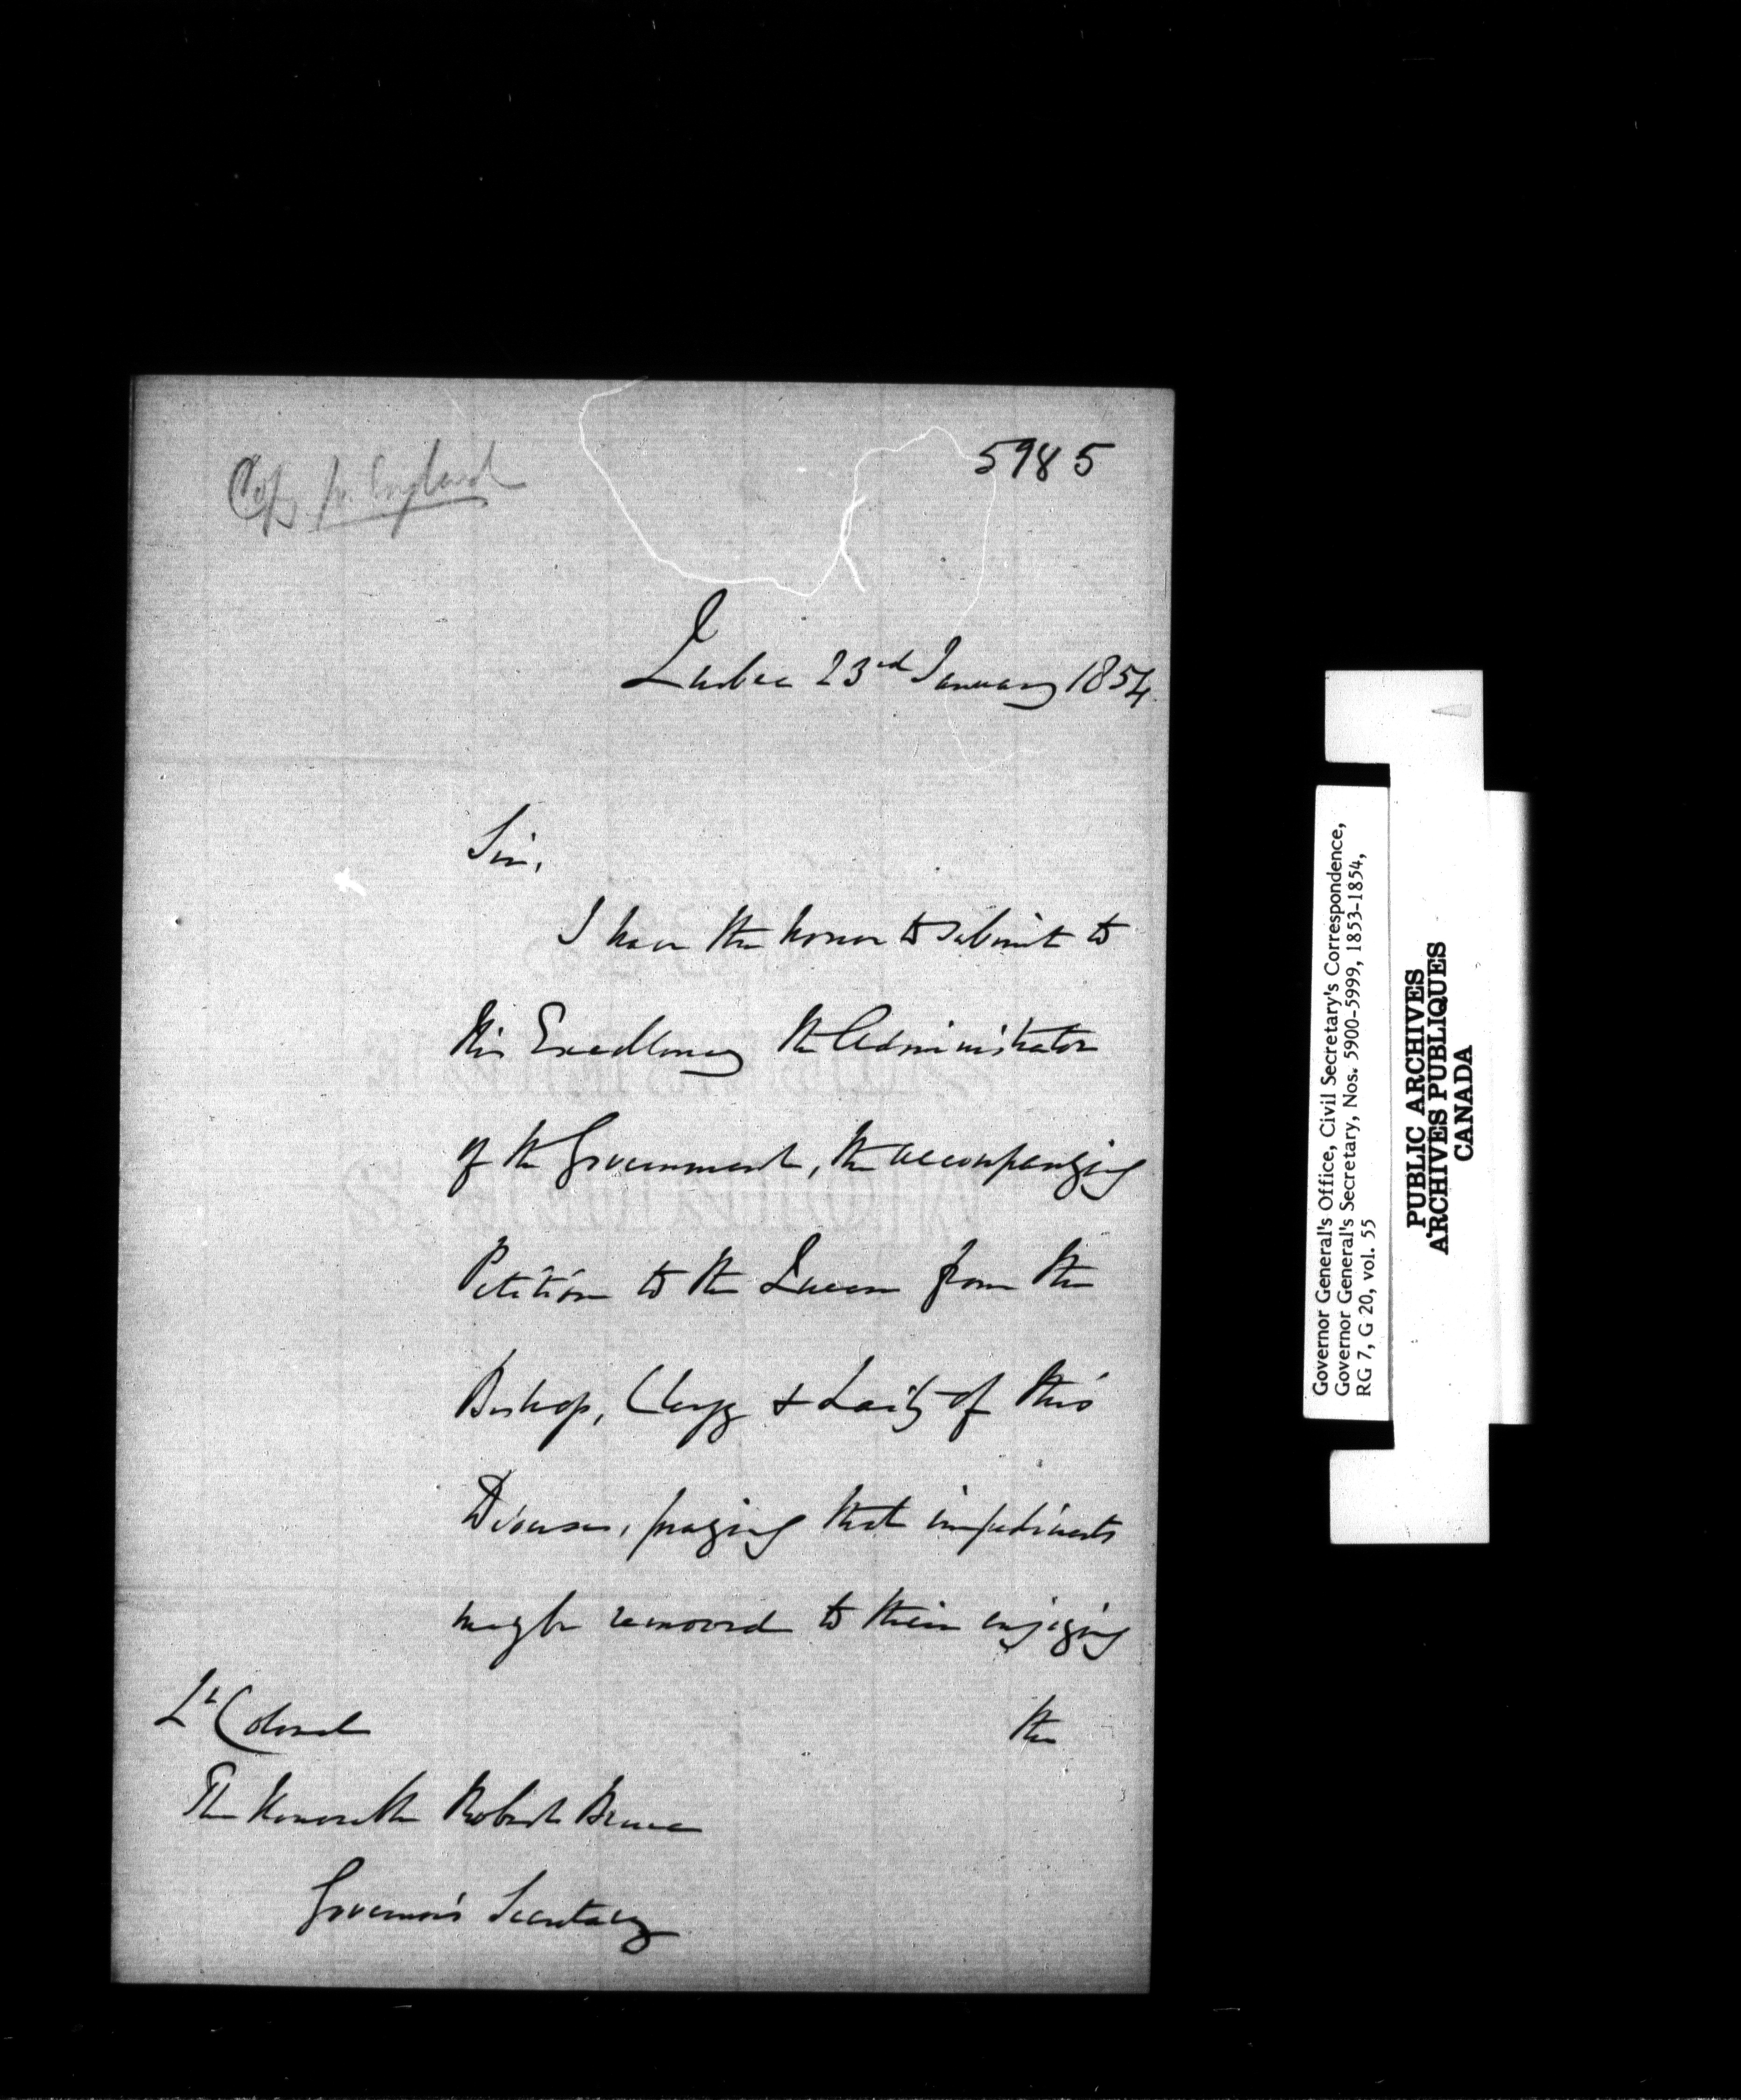 5985
Copy for England
Quebec 23rd January 1854.
Sir,
I have the honor to submit to
His Excellency the Administrator
of the Government, the accompanying
Petition to the Queen from the
Bishop, Clergy & Laity of this
Diocese, praying that impediments
may be removed to their enjoying
the
Lt Colonel
The Honorable Robert Bruce
Governor's Secretary
Governor General's Office, Civil Secretary's Correspondence,
Governor General's Secretary, Nos. 5900-5999, 1853-1854,
RG 7, G 20, vol. 55
PUBLIC ARCHIVES
ARCHIVES PUBLIQUES
CANADA